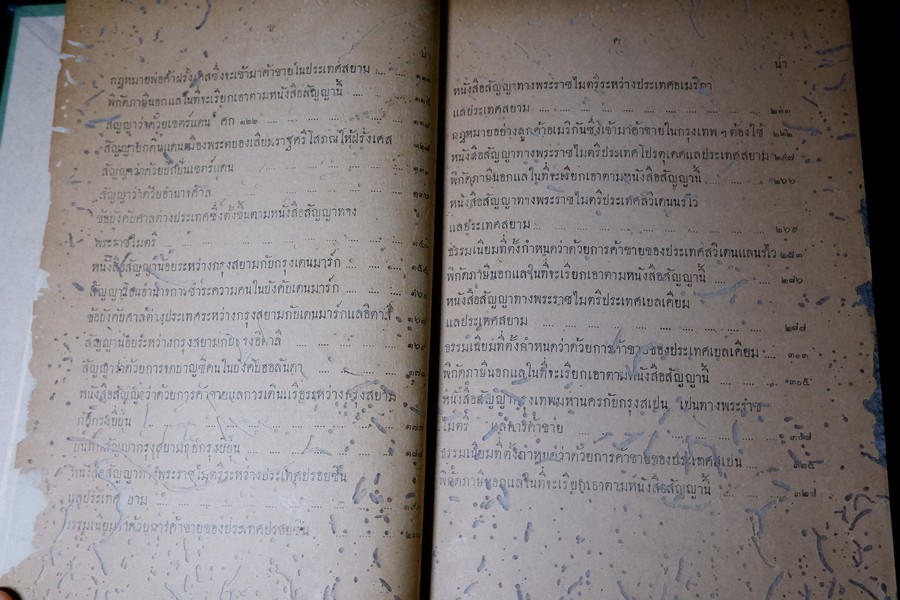 ข
น่า
กฎหมายพ่อค้าฝรั่งเศสซึ่งจะเข้ามาค้าขายในประเทศสยาม
พิกัดภาษีนอกแลในที่จะเรียกเอาตามหนังสือสัญญานี้
สัญญาว่าด้วยเขตร์แดน ศก ๑๒๒
สัญญายกดินแดนเมืองพระตะบองเสียมราฐศรีโสภณให้ฝรั่งเศส
สัญญาว่าด้วยปักปันเขตร์แดน
สัญญาว่าด้วยอำนาจศาล
ข้อบังคับศาลต่างประเทศซึ่งตั้งขึ้นตามหนังสือสัญญาทาง
พระราชไมตรี
หนังสือสัญญาน้อยระหว่างกรุงสยามกับกรุงเดนมาร์ก
สัญญาโอนอำนาจการชำระความคนในบังคับเดนมาร์ก
ข้อบังคับศาลต่างประเทศระหว่างกรุงสยามกับเดนมาร์กแลอิตาลี
สัญญาน้อยระหว่างกรุงสยามกับกรุงอิตาลี ๑๖๙
สัญญาว่าด้วยการจดบาญชีคนในบังคับฮอลันดา
หนังสือสัญญาว่าด้วยการค้าขายแลการเดินเรือระหว่างกรุงสยาม
กับกรุงยี่ปุ่น
สัญญากรุงสยามกับกรุงยี่ปุ่น
หนังสือสัญญาทางพระราชไมตรีระหว่างประเทศปรอยซิน
แลประเทศสยาม
ธรรมเนียมว่าด้วยการค้าขายของประเทศปรอยซิน
ค
น่า
หนังสือสัญญาทางพระราชไมตรีระหว่างประเทศอเมริกา
แลประเทศสยาม
กฎหมายอย่างลูกค้าอเมริกันซึ่งเข้ามาค้าขายในกรุงเทพ ๆ ต้องใช้
หนังสือสัญญาทางพระราชไมตรีประเทศโปรตุเคศแลประเทศสยาม ๒๔๗
พิกัดภาษีนอกแลในที่จะเรียกเอาตามหนังสือสัญญานี้ ๒๖๖
หนังสือสัญญาทางพระราชไมตรีประเทศสวิเดนนรเว
แลประเทศสยาม ๒๖๙
ธรรมเนียมที่ตั้งกำหนดว่าด้วยการค้าขายของประเทศสวิเดนแลนรเว
พิกัดภาษีนอกแลในที่จะเรียกเอาตามหนังสือสัญญานี้ ๒๘๖
หนังสือสัญญาทางพระราชไมตรีประเทศเบลเคียม
แลประเทศสยาม ๒๘๘
ธรรมเนียมที่ตั้งกำหนดว่าด้วยการค้าขายของประเทศเบลเคียม ๓๐๓
พิกัดภาษีนอกแลในที่จะเรียกเอาตามหนังสือสัญญานี้ ๓๐๕
หนังสือสัญญากรุงเทพมหานครกับกรุงสเปน เปนทางพระราช
ไมตรี แลค้าขาย
ธรรมเนียมที่ตั้งกำหนดว่าด้วยการค้าขายของประเทศสเปน ๓๒๕
พิกัดภาษีนอกแลในที่จะเรียกเอาตามหนังสือสัญญานี้ ๓๒๗